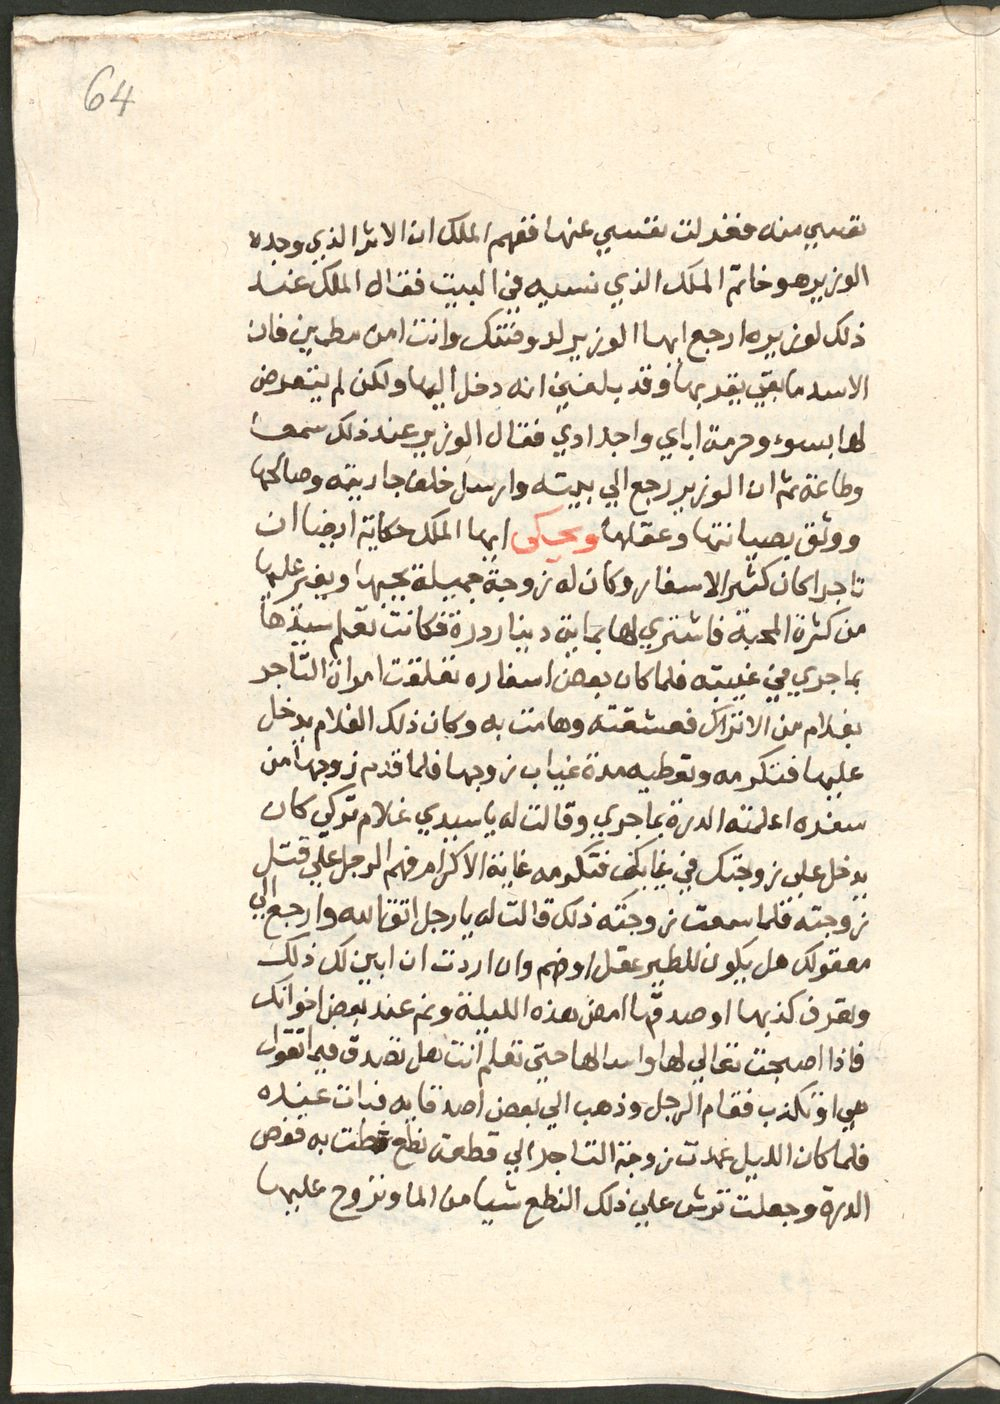 64
نفسي منه فغدلت نفسي عنها ففهم الملك ان الاثر الذي وجده
الوزير هو خاتم الملك الذي نسيه في البيت فقال الملك عند
ذلك لوزيره ارجع ايها الوزير لدوضتك وانت امن مطمين فان
الاسد ما بقي يقدبها وقد بلغني انه دخل اليها ولكن لم يتعرض
لها بسوء وحرمة اباي واجدادي فقال الوزير عند ذلك سمعا
وطاعة ثم ان الوزير رجع الي بيته وارسل خلف جاريته وصالحها
ووثق بصيانتها وعقلها ويحكى ايها الملك حكاية ايضا ان
تاجرا كان كثير الاسفار وكان له زوجة جميلة يحبها ويغير عليها
من كثرة المحبة فاشتري لها بماية دينار درة فكانت تعلم سيدها
بما جري في غيبته فلما كان بعض اسفاره تعلقت امراة التاجر
بغلام من الاتراك فعشقته وهامت به وكان ذلك الغلام يدخل
عليها فتكرمه وتعطيه مدة غياب زوجها فلما قدم زوجها من
سفره اعلمته الدرة بما جري وقالت له يا سيدي غلام تركي كان
يدخل علي زوجتك في غيابك فتكرمه غاية الاكرام فهم الرجل علي قتل
زوجته فلما سمعت زوجته ذلك قالت له يا رجل اتق الله وارجع الي
معقولك هل يكون للطير عقل او فهم وان اردت ان ابين لك ذلك
وتعرف كذبها او صدقها امض هذه الليلة ونم عند بعض اخوانك
فاذا اصبحت تعالي لها واسالها حتي تعلم انت هل تصدق فيما تقول
هي او تكذب فقام الرجل وذهب الي بعض اصدقايه فبات عنده
فلما كان الليل عمدت زوجة التاجر الي قطعة نطع غطت به قفص
الدرة وجعلت ترش علي ذلك النطع شيا من الما وتروح عليها